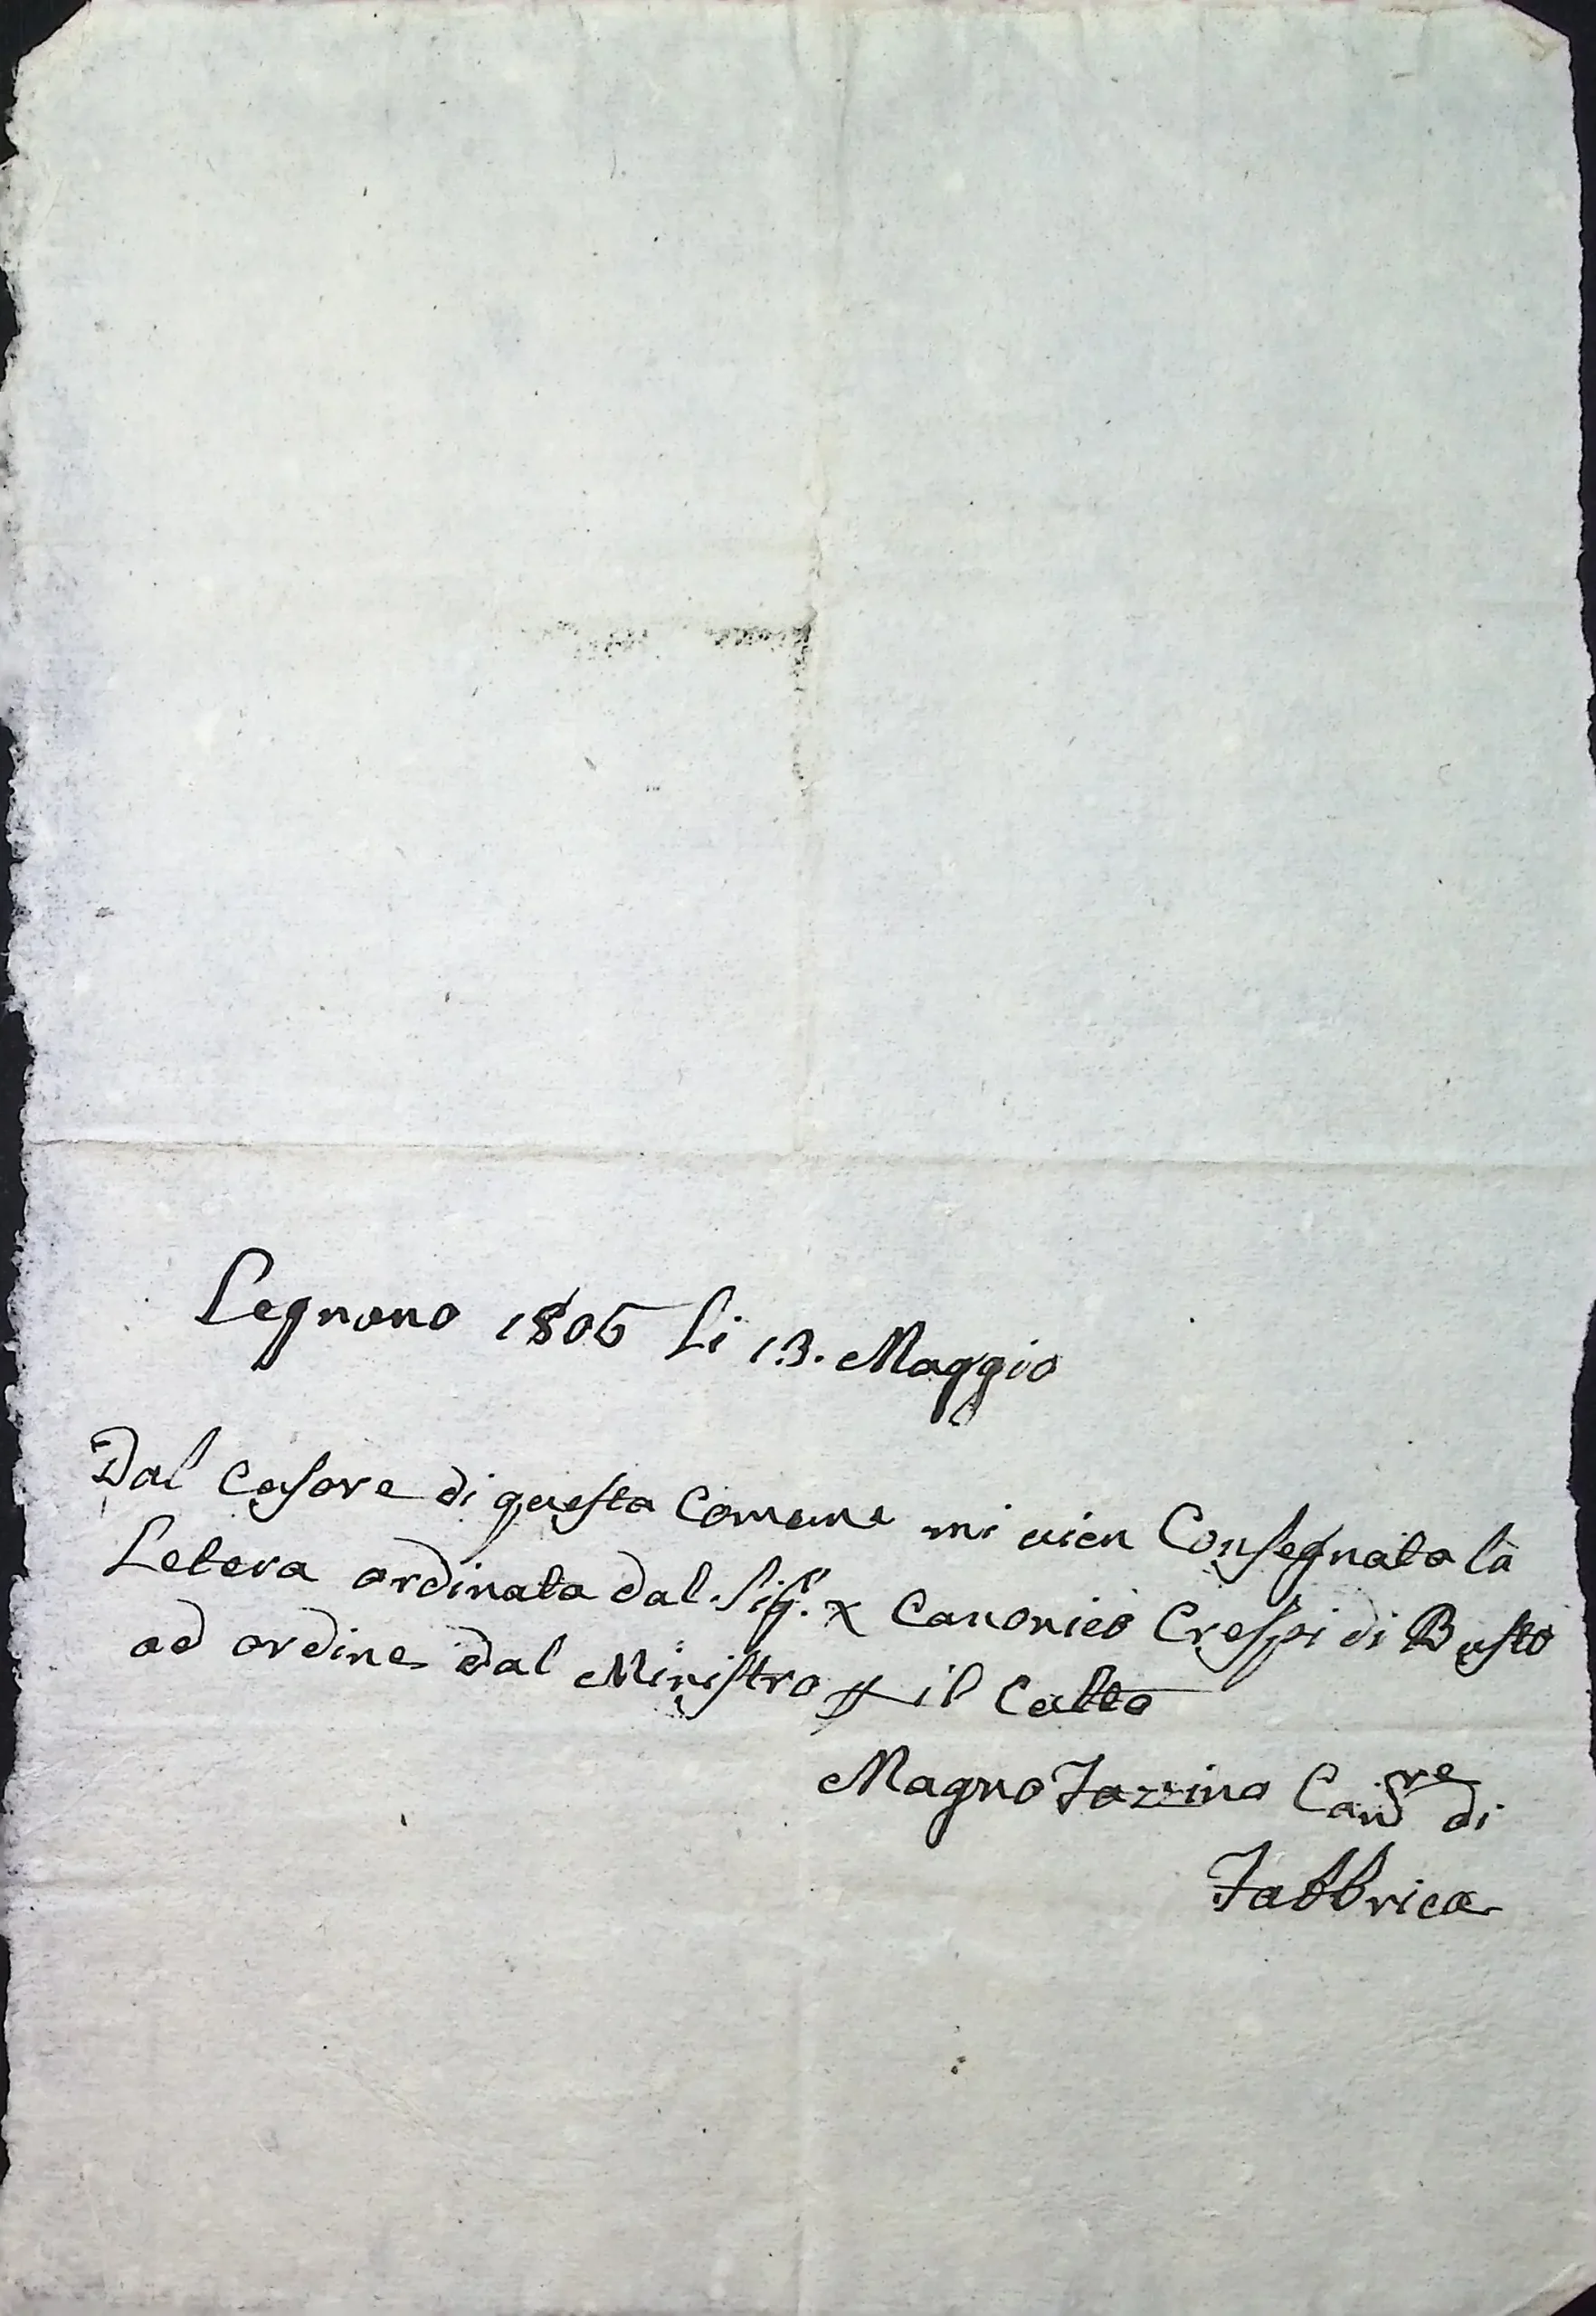 Legnano 1806 Li 13. Maggio
Dal Cesore di questa Comune mi vien Consegnata la
Letera ordinata dal Sig.r x Canonico Crespi di Busto
ad ordine dal Ministro il Culto
Magno Fazzino di
Fabbrica